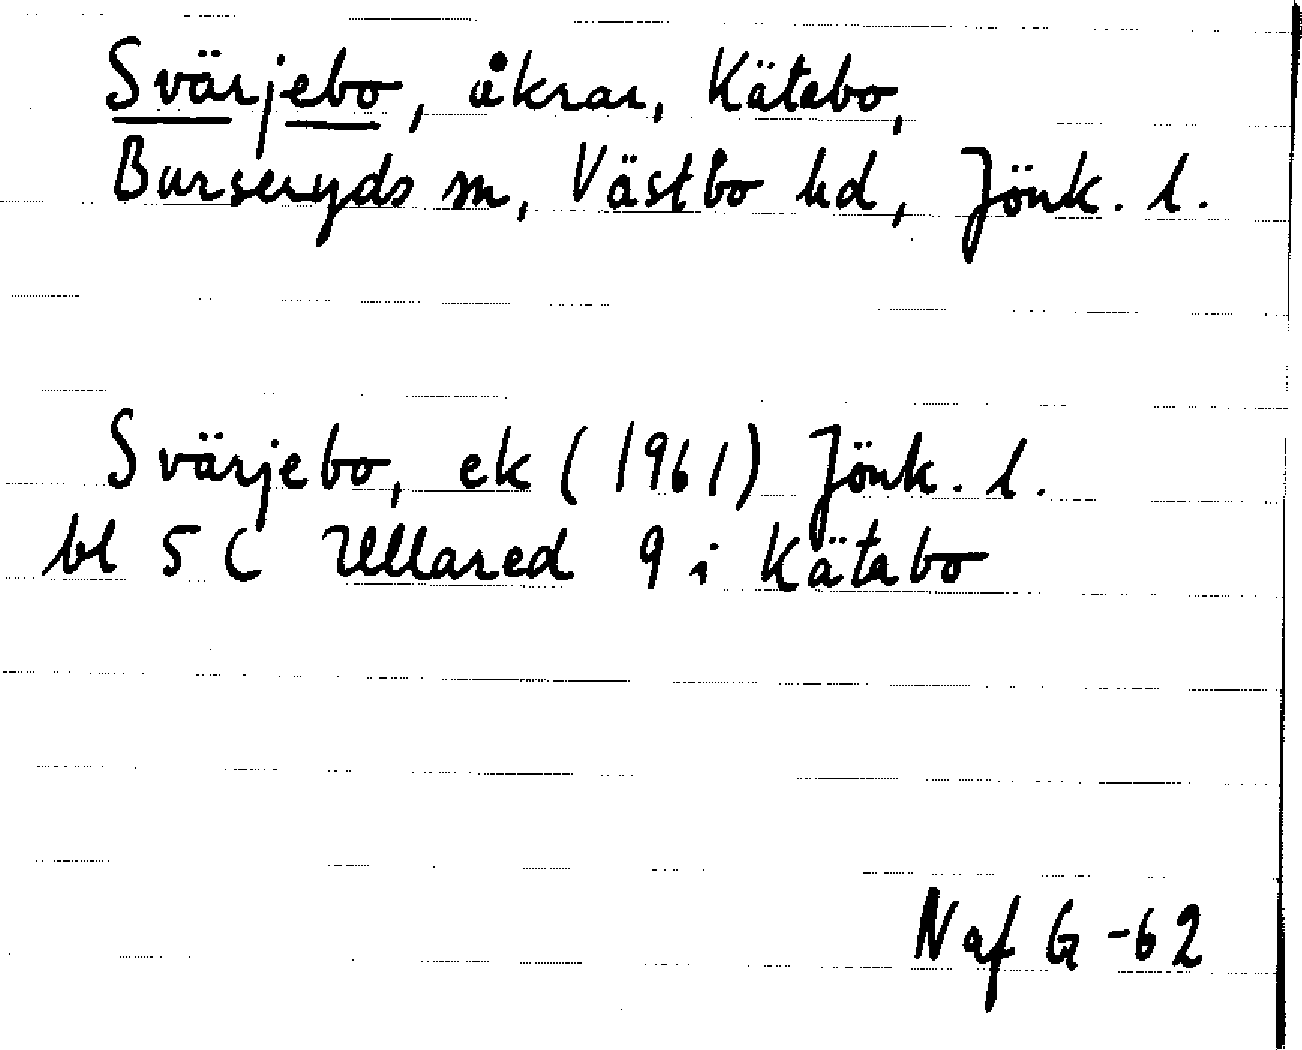 Svärjebo, åkrar, Kätebo,
Burseryds sn, Västbo hd, Jönk. l.
Svärjebo, ek (1961) Jönk. l.
bl 5 C Ullared 9 i Kätabo
Naf G -62